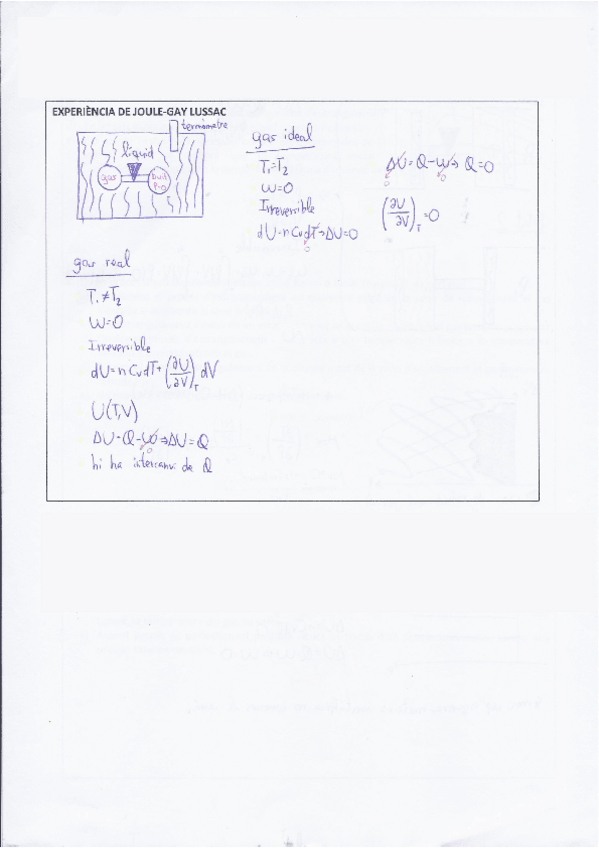 EXPERIÈNCIA DE JOULE-GAY LUSSAC
termòmetre
líquid
gas
buit
P=0
gas ideal
T₁=T₂
W=0
Irreversible
dU=nCvdT→ΔU=0
0
ΔU=Q-W→Q=0
0 0
(∂U/∂V)T=0
gas real
T₁≠T₂
W=0
Irreversible
dU=nCvdT+(∂U/∂V)T dV
U(T,V)
ΔU=Q-W→ΔU=Q
0
hi ha intercanvi de Q